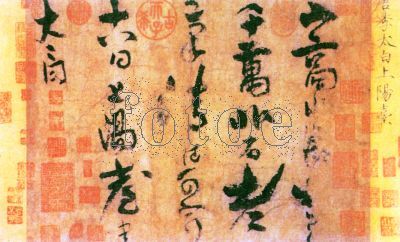 唐李太白上陽臺
山高水長物象
千萬非有老
筆清壯可窮
十八日上陽臺書
太白
fotoe